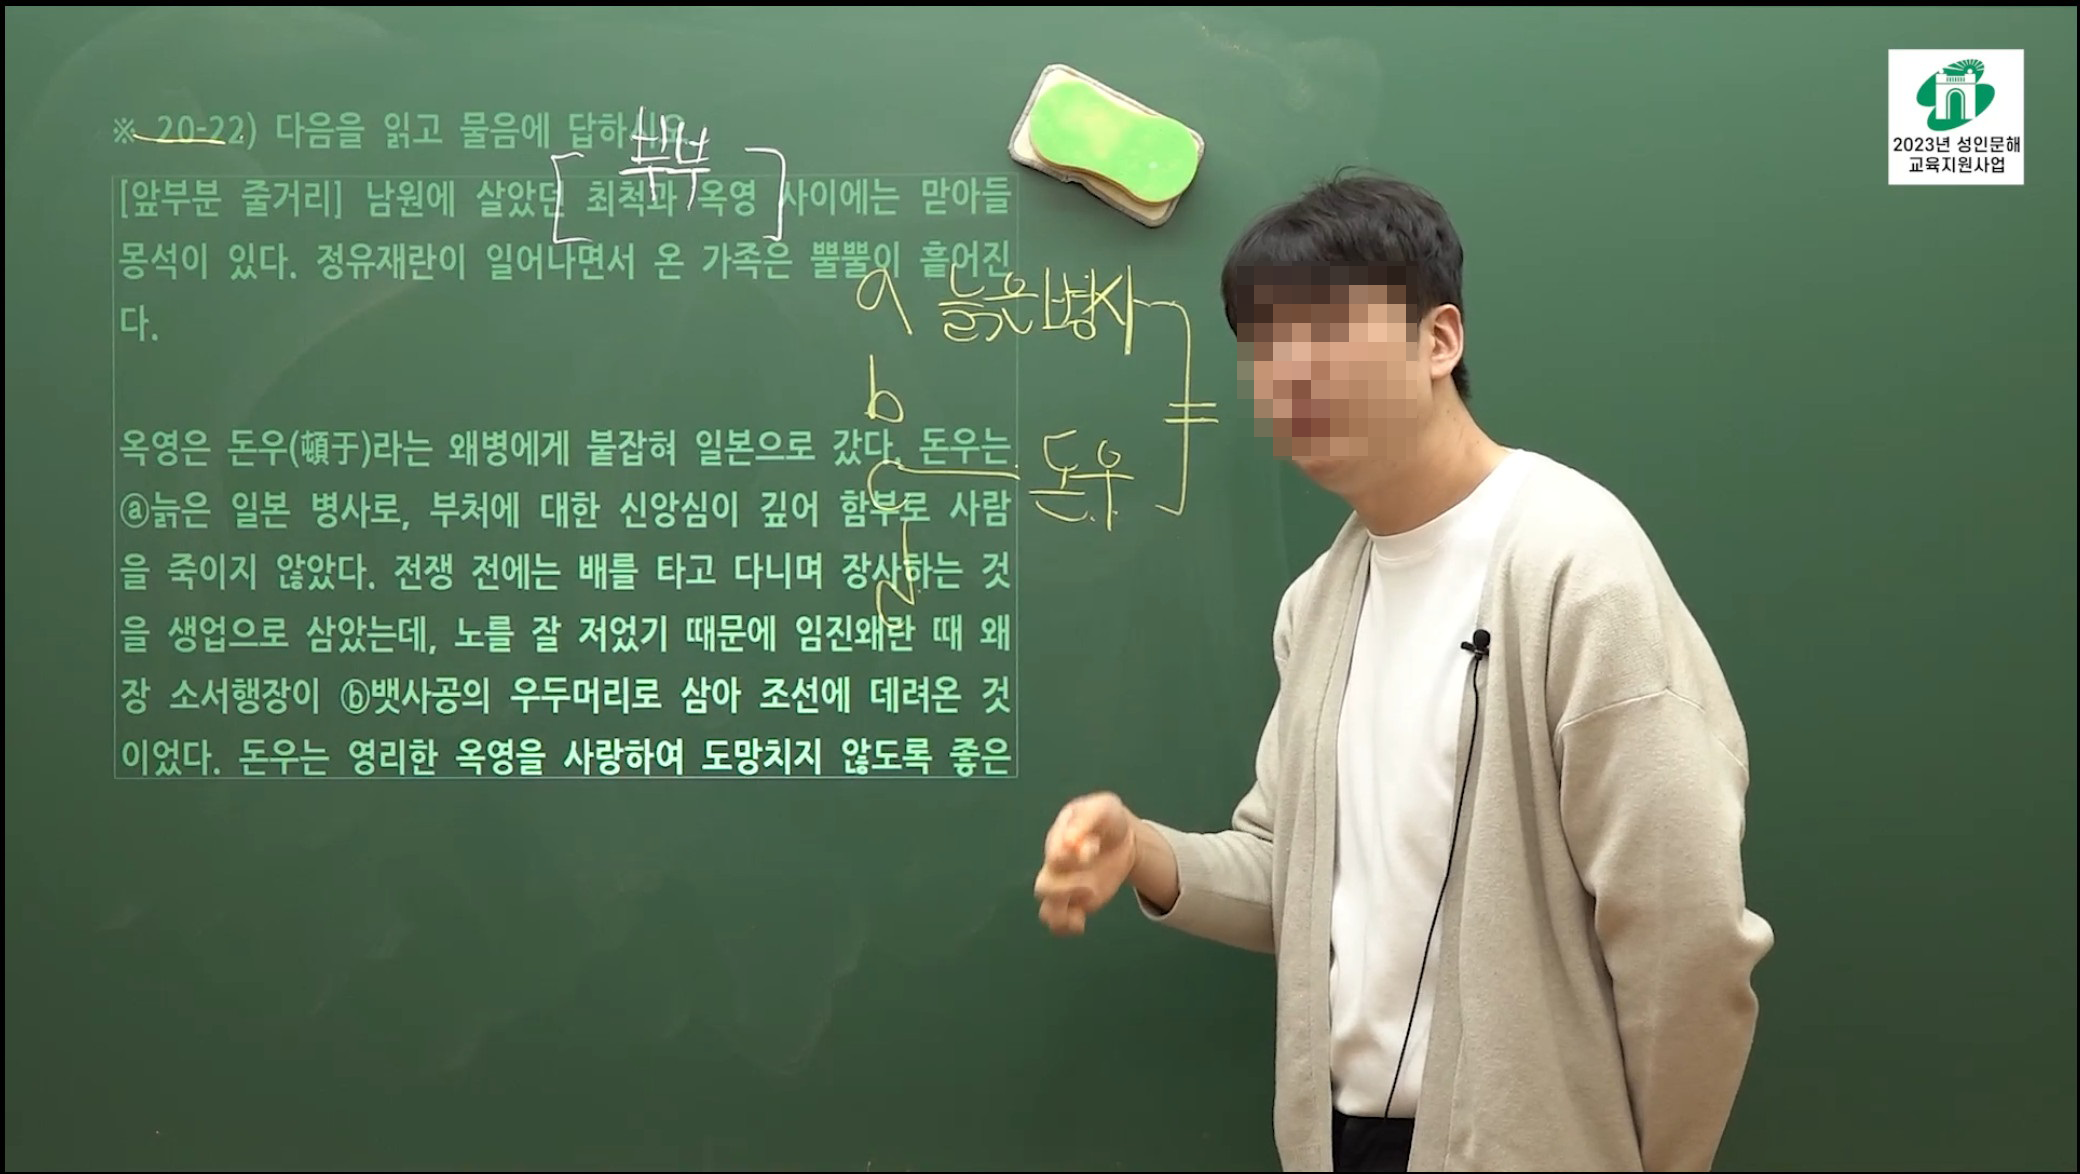 ※ 20-22) 다음을 읽고 물음에 답하시오.
부부
[앞부분 줄거리] 남원에 살았던 최척과 옥영 사이에는 맏아들
몽석이 있다. 정유재란이 일어나면서 온 가족은 뿔뿔이 흩어진
다.
옥영은 돈우(頓于)라는 왜병에게 붙잡혀 일본으로 갔다. 돈우는
ⓐ늙은 일본 병사로, 부처에 대한 신앙심이 깊어 함부로 사람
을 죽이지 않았다. 전쟁 전에는 배를 타고 다니며 장사하는 것
을 생업으로 삼았는데, 노를 잘 저었기 때문에 임진왜란 때 왜
장 소서행장이 ⓑ뱃사공의 우두머리로 삼아 조선에 데려온 것
이었다. 돈우는 영리한 옥영을 사랑하여 도망치지 않도록 좋은
a 늙은병사
b
c 돈우
d
2023년 성인문해
교육지원사업